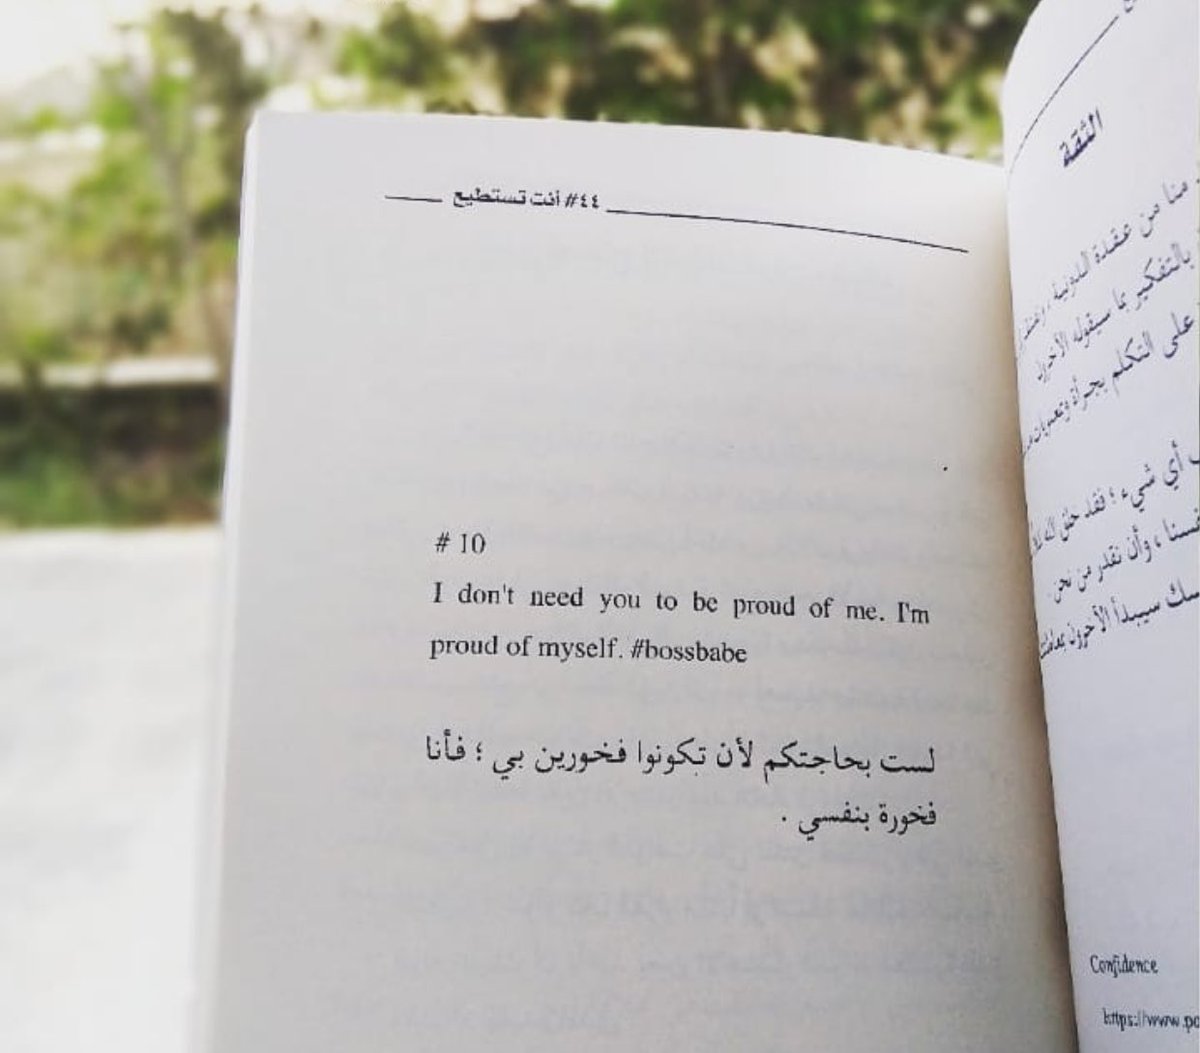 #٤٤ أنت تستطيع
# 10
I don't need you to be proud of me. I'm
proud of myself. #bossbabe
لست بحاجتكم لأن تكونوا فخورين بي ؛ فأنا
فخورة بنفسي .
الثقة
منا من عقدة الدونية ،
بالتفكير بما سيقوله الآخرون
على التكلم بجرأة
أي شيء ؛ فقد خلق الله
، وأن نقدر من نحن .
سيبدأ الآخرون
Confidence
https://www.po